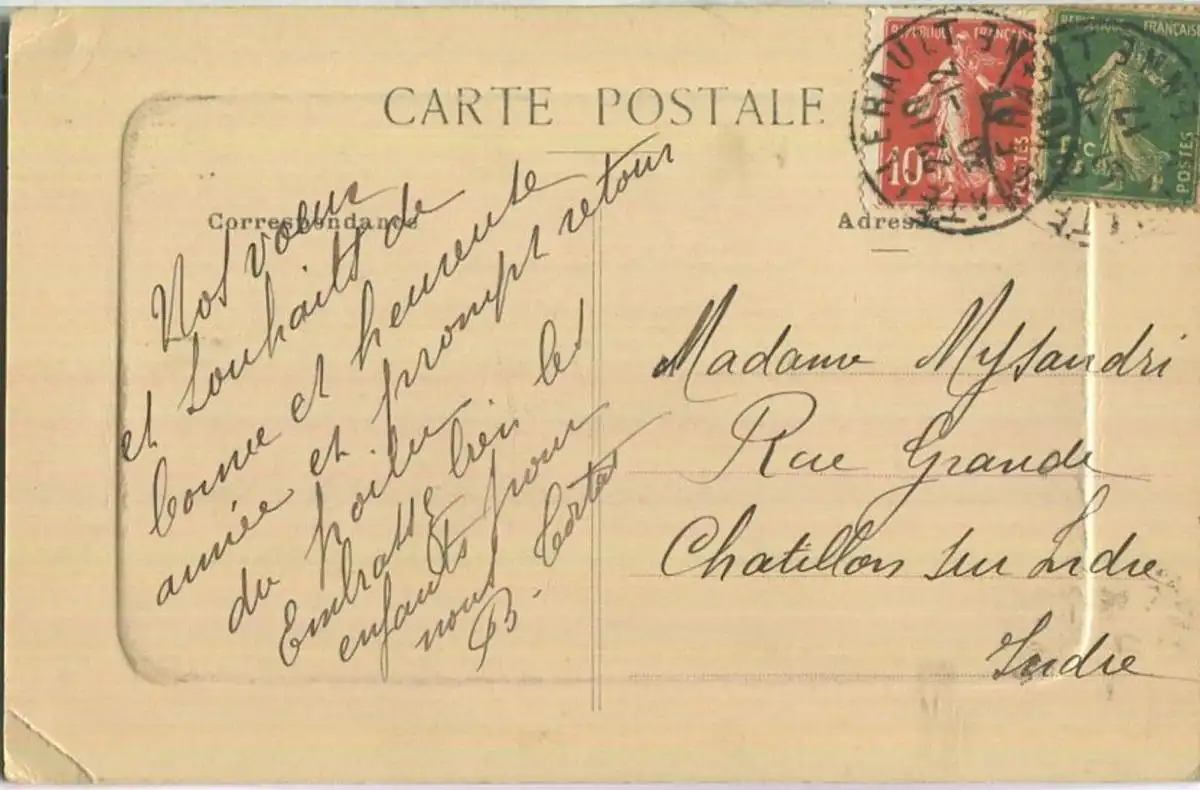 CARTE POSTALE
Correspondance
Nos voeux
et souhaits de
bonne et heureuse
année et prompt retour
du poilu
Embrassez bien les
enfants pour
nous
B.
Adresse
Madame Mysandri
Rue Grande
Chatillon sur Indre
Indre
REPUBLIQUE FRANÇAISE
10
POSTES
REPUBLIQUE FRANÇAISE
5 C
POSTES